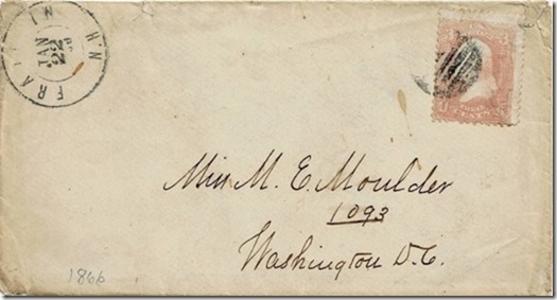 N.H.
JAN
22
Miss M. E. Moulder
1093
Washington D.C.
1866